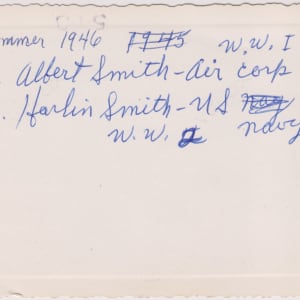 mmer 1946 1945 W.W. I
. Albert Smith-Air Corp
. Harlin Smith-US
W.W. 2 navy